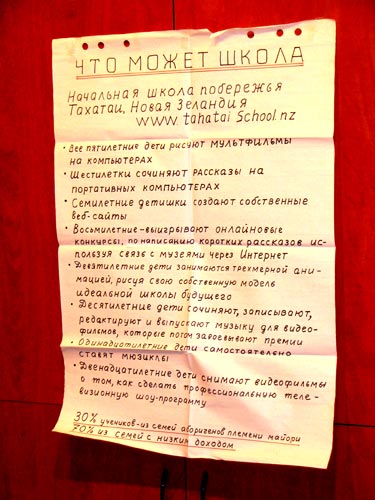 ЧТО МОЖЕТ ШКОЛА
Начальная школа побережья
Тахатаи, Новая Зеландия
www.tahatai School.nz
• Все пятилетние дети рисуют мультфильмы
на компьютерах
• Шестилетки сочиняют рассказы на
портативных компьютерах
• Семилетние детишки создают собственные
веб-сайты
• Восьмилетние-выигрывают онлайновые
конкурсы, по написанию коротких рассказов ис-
пользуя связь с музеями через Интернет
• Девятилетние дети занимаются трёхмерной ани-
мацией, рисуя свою собственную модель
идеальной школы будущего
• Десятилетние дети сочиняют, записывают,
редактируют и выпускают музыку для видео-
фильмов, которые потом завоевывают премии
• Одинадцатилетние дети самостоятельно
ставят мюзиклы
• Двенадцатилетние дети снимают видеофильмы
о том, как сделать профессиональную теле-
визионную шоу-программу
30% учеников-из семей аборигенов племени майори
70% из семей с низким доходом